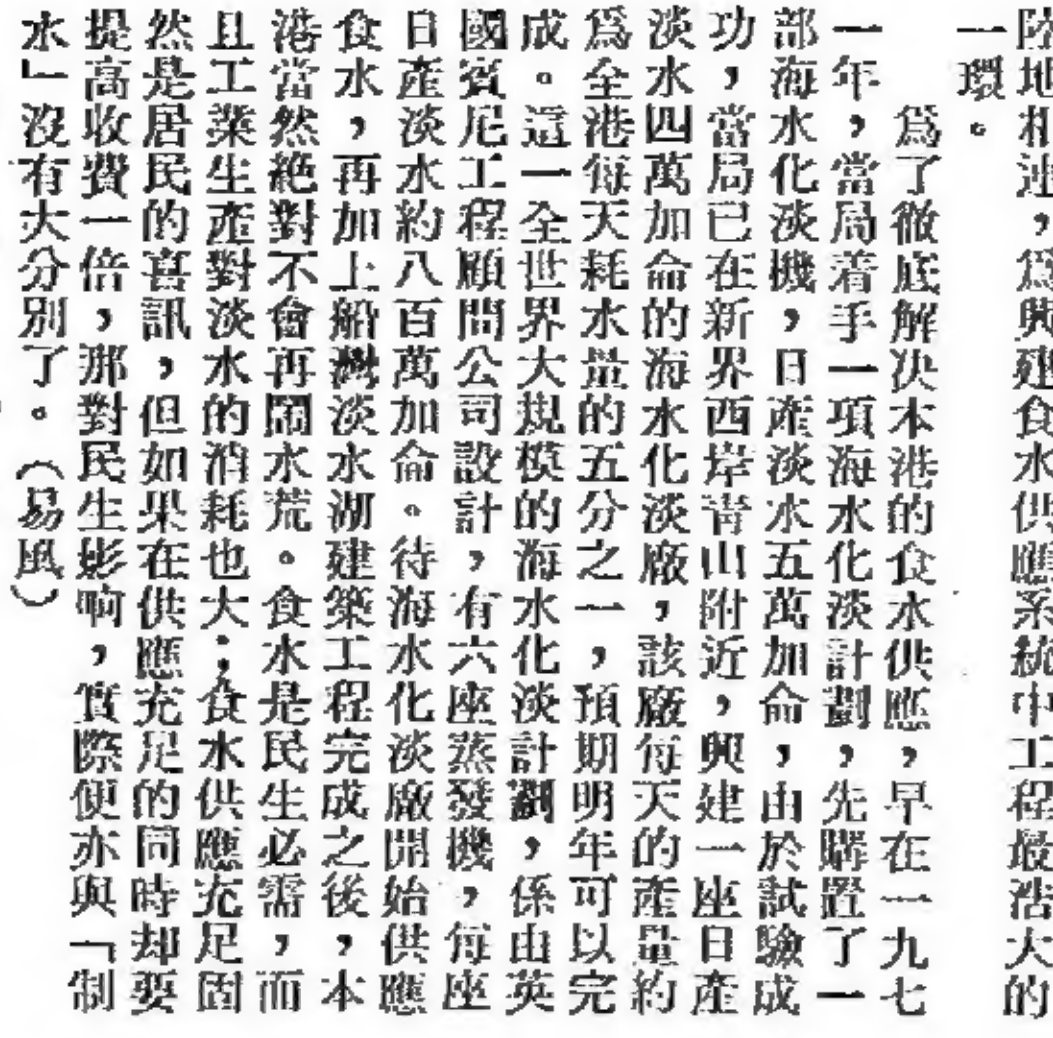 陸地相連，爲興建食水供應系統中工程最浩大的
一環。
爲了徹底解决本港的食水供應，早在一九七
一年，當局着手一項海水化淡計劃，先購置了一
部海水化淡機，日產淡水五萬加侖，由於試驗成
功，當局已在新界西岸靑山附近，興建一座日產
淡水四萬加侖的海水化淡廠，該廠每天的產量約
爲全港每天耗水量的五分之一，預期明年可以完
成。這一全世界大規模的海水化淡計劃，係由英
國賓尼工程顧問公司設計，有六座蒸發機，每座
日產淡水約八百萬加侖。待海水化淡廠開始供應
食水，再加上船灣淡水湖建築工程完成之後，本
港當然絶對不會再鬧水荒。食水是民生必需，而
且工業生產對淡水的消耗也大；食水供應充足固
然是居民的喜訊，但如果在供應充足的同時却要
提高收費一倍，那對民生影响，實際便亦與「制
水」沒有大分別了。（易風）